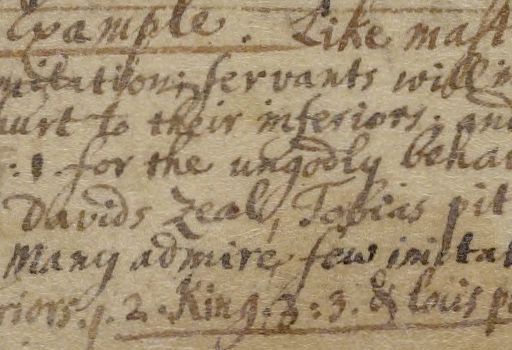 Example. Like mast
mitation; servants will in
hurt to their inferiors; and
: 1. for the ungodly behav
Davids Zeal, Tobias pit
Many admire, few imitat
riors. 1. 2. King. 3: 3. & louis p